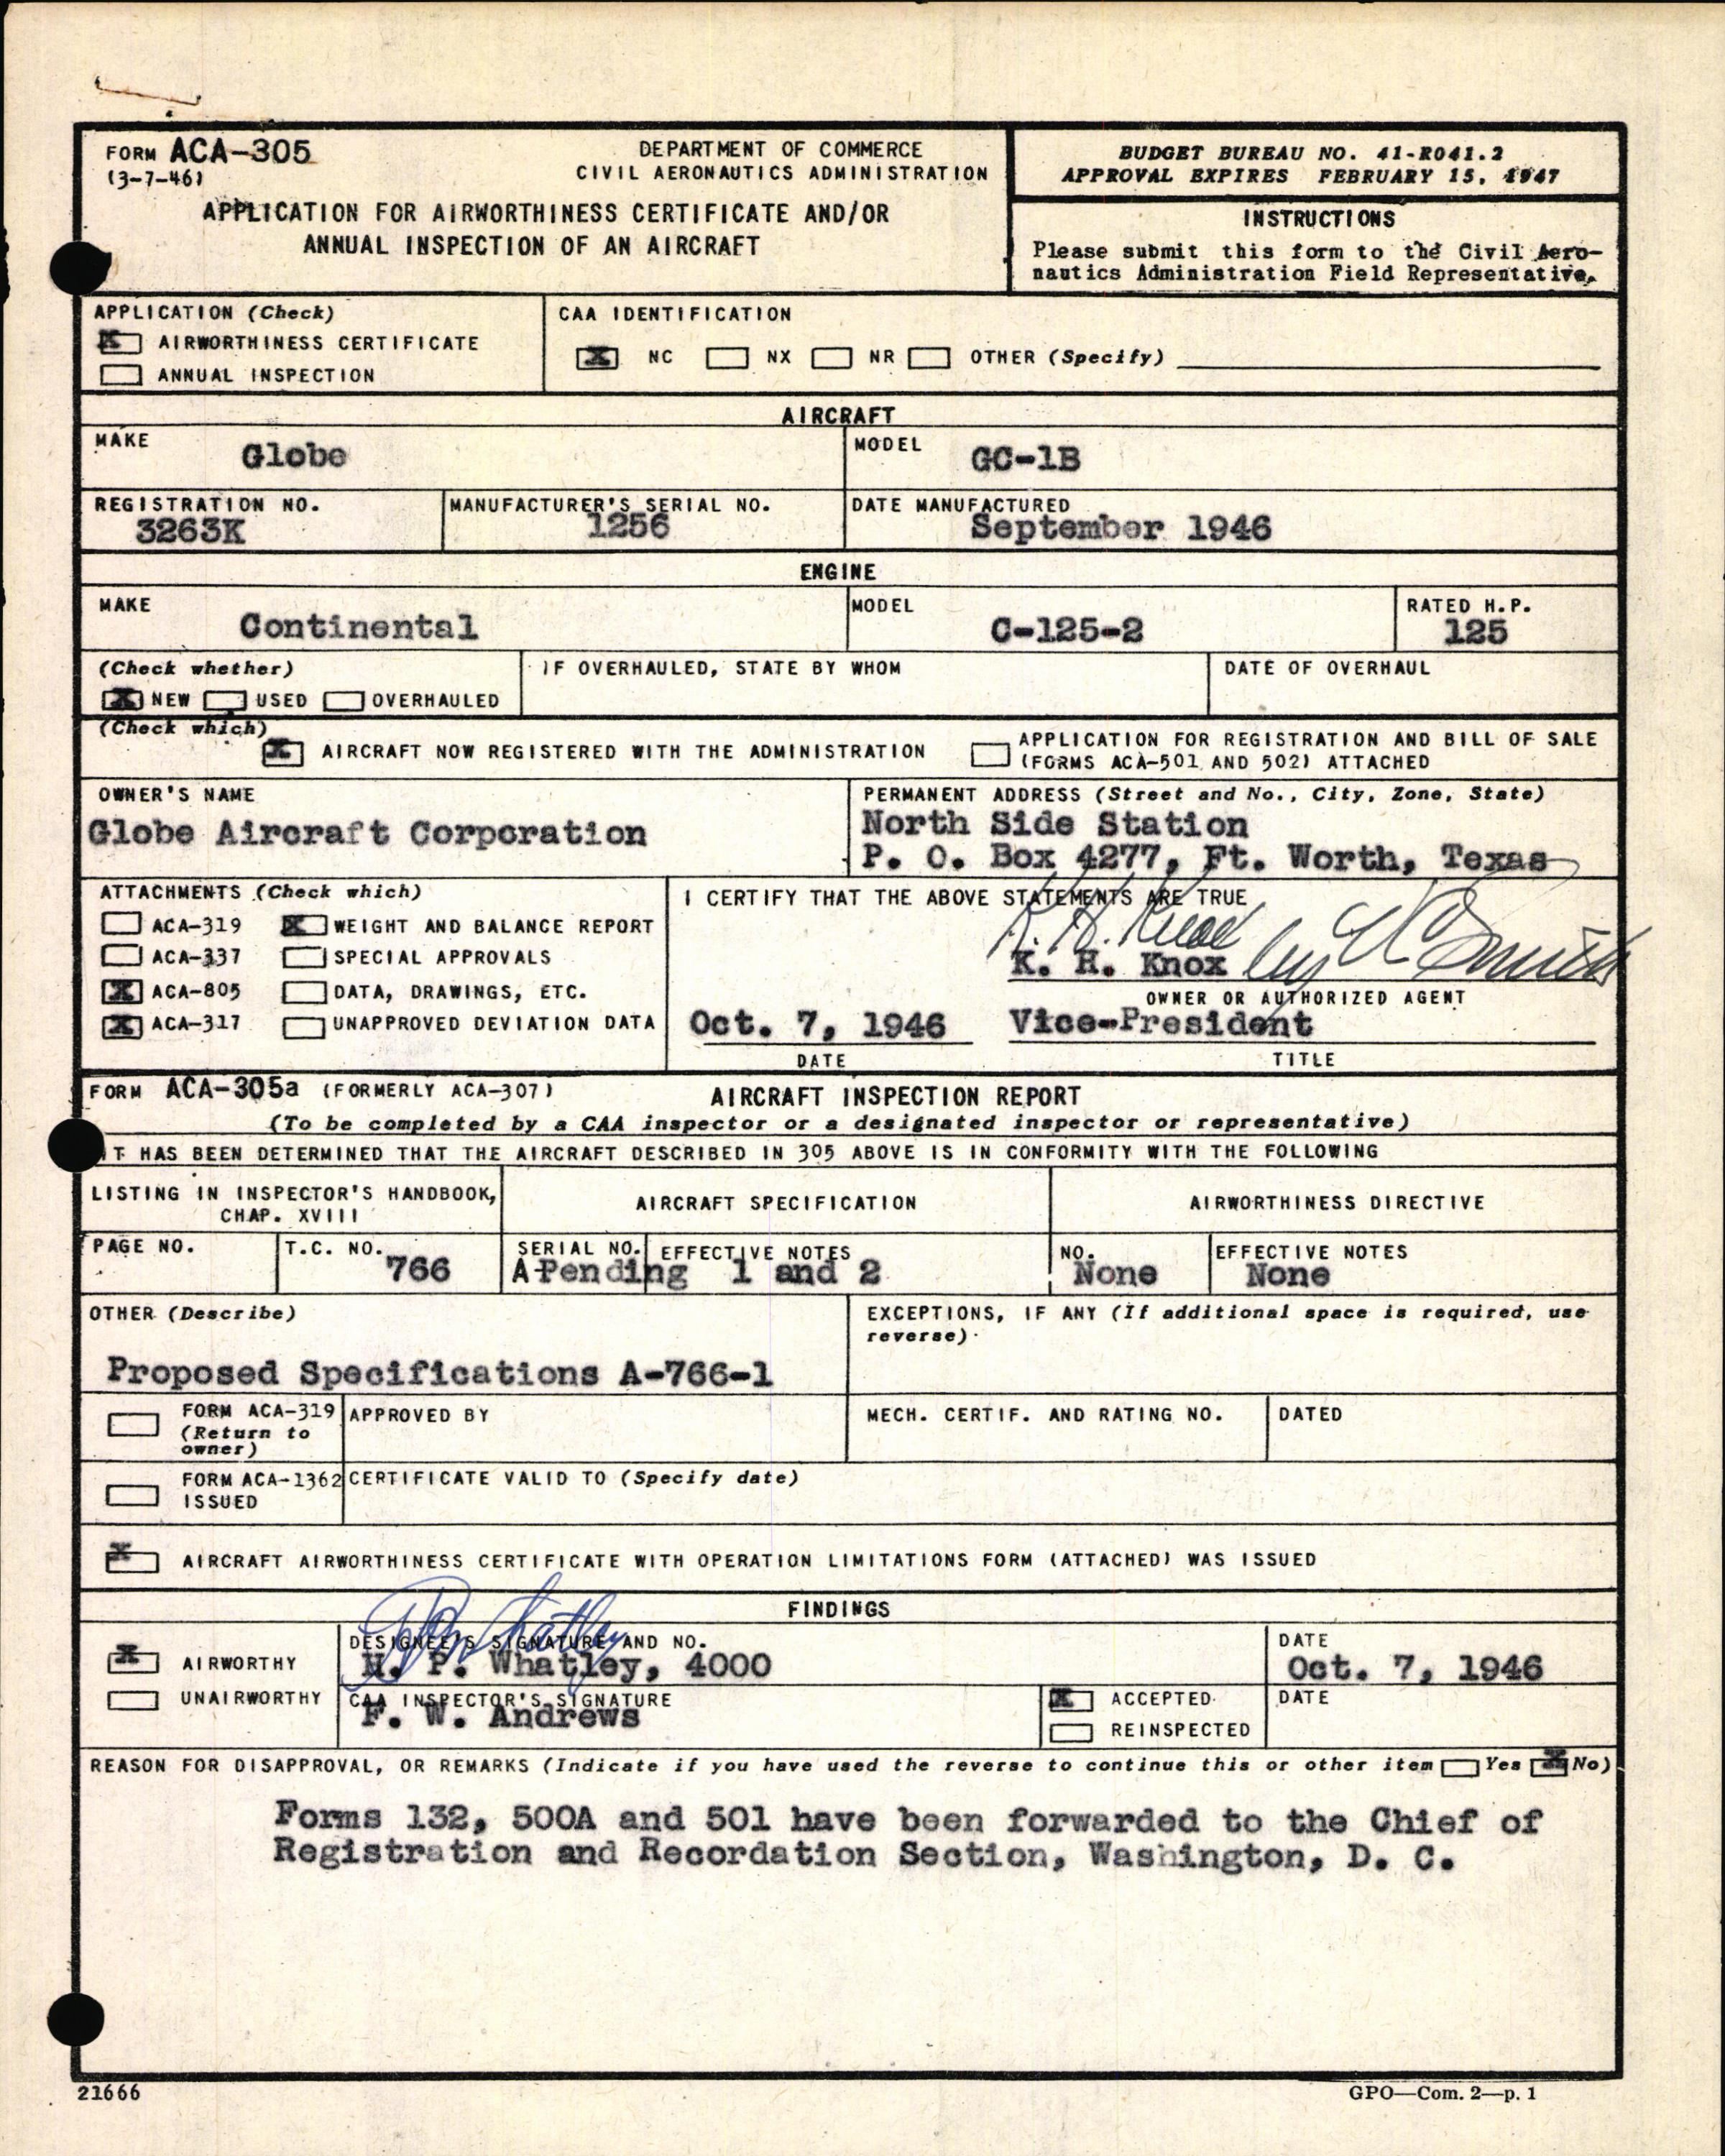 FORM ACA-305
(3-7-46)
DEPARTMENT OF COMMERCE
CIVIL AERONAUTICS ADMINISTRATION
APPLICATION FOR AIRWORTHINESS CERTIFICATE AND/OR
ANNUAL INSPECTION OF AN AIRCRAFT
BUDGET BUREAU NO. 41-R041.2
APPROVAL EXPIRES FEBRUARY 15, 1947
INSTRUCTIONS
Please submit this form to the Civil Aero-
nautics Administration Field Representative.
APPLICATION (Check)
X AIRWORTHINESS CERTIFICATE
ANNUAL INSPECTION
CAA IDENTIFICATION
X NC NX NR OTHER (Specify)
AIRCRAFT
MAKE
Globe
MODEL
GC-1B
REGISTRATION NO.
3263K
MANUFACTURER'S SERIAL NO.
1256
DATE MANUFACTURED
September 1946
ENGINE
MAKE
Continental
MODEL
C-125-2
RATED H.P.
125
(Check whether)
X NEW USED OVERHAULED
IF OVERHAULED, STATE BY WHOM
DATE OF OVERHAUL
(Check which)
X AIRCRAFT NOW REGISTERED WITH THE ADMINISTRATION
APPLICATION FOR REGISTRATION AND BILL OF SALE
(FORMS ACA-501 AND 502) ATTACHED
OWNER'S NAME
Globe Aircraft Corporation
PERMANENT ADDRESS (Street and No., City, Zone, State)
North Side Station
P. O. Box 4277, Ft. Worth, Texas
ATTACHMENTS (Check which)
ACA-319 X WEIGHT AND BALANCE REPORT
ACA-337 SPECIAL APPROVALS
X ACA-805 DATA, DRAWINGS, ETC.
X ACA-317 UNAPPROVED DEVIATION DATA
I CERTIFY THAT THE ABOVE STATEMENTS ARE TRUE
K. H. Knox by Smith
K. H. Knox
OWNER OR AUTHORIZED AGENT
Oct. 7, 1946 Vice-President
DATE TITLE
FORM ACA-305a (FORMERLY ACA-307)
AIRCRAFT INSPECTION REPORT
(To be completed by a CAA inspector or a designated inspector or representative)
IT HAS BEEN DETERMINED THAT THE AIRCRAFT DESCRIBED IN 305 ABOVE IS IN CONFORMITY WITH THE FOLLOWING
LISTING IN INSPECTOR'S HANDBOOK,
CHAP. XVIII
AIRCRAFT SPECIFICATION
AIRWORTHINESS DIRECTIVE
PAGE NO.
T.C. NO.
766
SERIAL NO. EFFECTIVE NOTES
A-Pending 1 and 2
NO.
None
EFFECTIVE NOTES
None
OTHER (Describe)
Proposed Specifications A-766-1
EXCEPTIONS, IF ANY (If additional space is required, use
reverse)
FORM ACA-319
(Return to
owner)
APPROVED BY
MECH. CERTIF. AND RATING NO.
DATED
FORM ACA-1362
ISSUED
CERTIFICATE VALID TO (Specify date)
X AIRCRAFT AIRWORTHINESS CERTIFICATE WITH OPERATION LIMITATIONS FORM (ATTACHED) WAS ISSUED
FINDINGS
X AIRWORTHY
UNAIRWORTHY
DESIGNEE'S SIGNATURE AND NO.
H. P. Whatley, 4000
DATE
Oct. 7, 1946
CAA INSPECTOR'S SIGNATURE
F. W. Andrews
X ACCEPTED
REINSPECTED
DATE
REASON FOR DISAPPROVAL, OR REMARKS (Indicate if you have used the reverse to continue this or other item Yes X No)
Forms 132, 500A and 501 have been forwarded to the Chief of
Registration and Recordation Section, Washington, D. C.
21666
GPO—Com. 2—p. 1